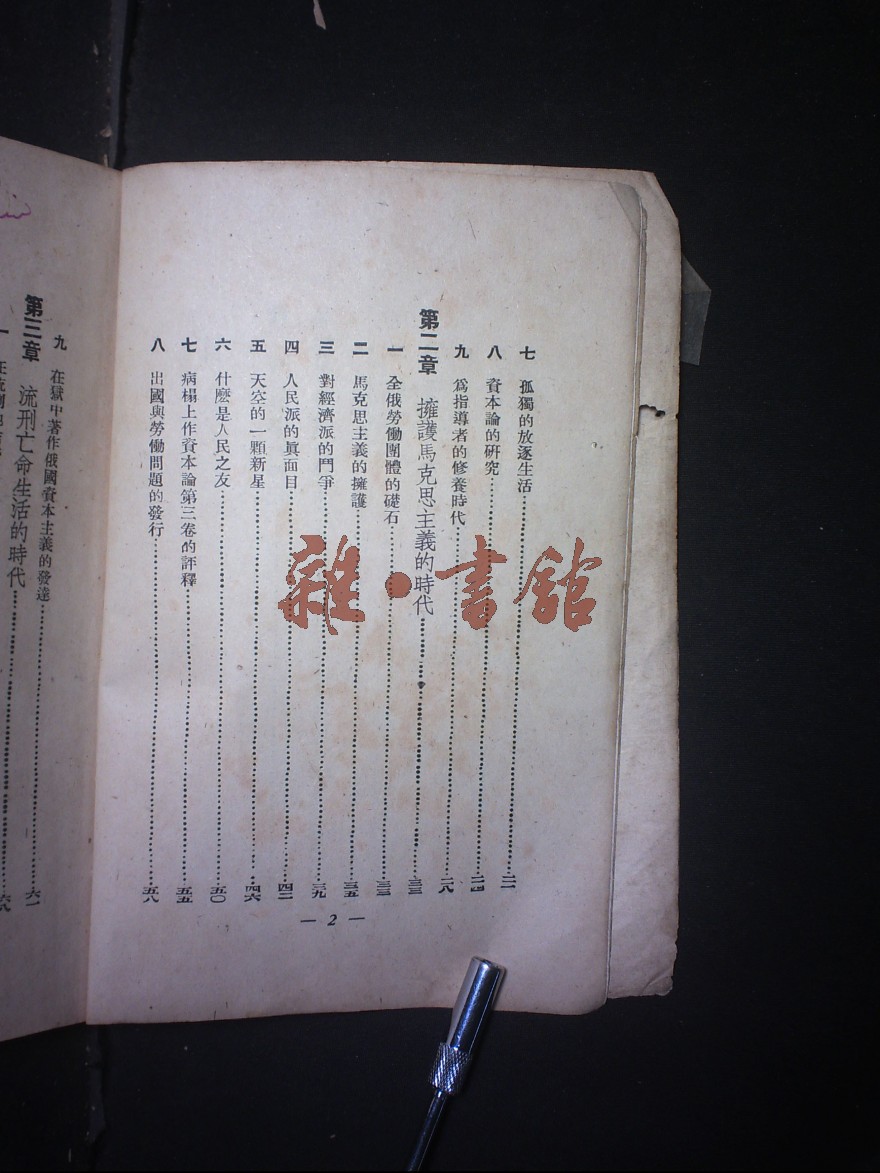 七 孤獨的放逐生活……二一
八 資本論的研究……二四
九 爲指導者的修養時代……二八
第二章 擁護馬克思主義的時代……三三
一 全俄勞働團體的礎石……三三
二 馬克思主義的擁護……三五
三 對經濟派的鬥爭……三九
四 人民派的眞面目……四二
五 天空的一顆新星……四六
六 什麽是人民之友……五〇
七 病榻上作資本論第三卷的評釋……五五
八 出國與勞働問題的發行……五八
— 2 —
九 在獄中著作俄國資本主義的發達……六一
第三章 流刑亡命生活的時代……
一
雜·書館